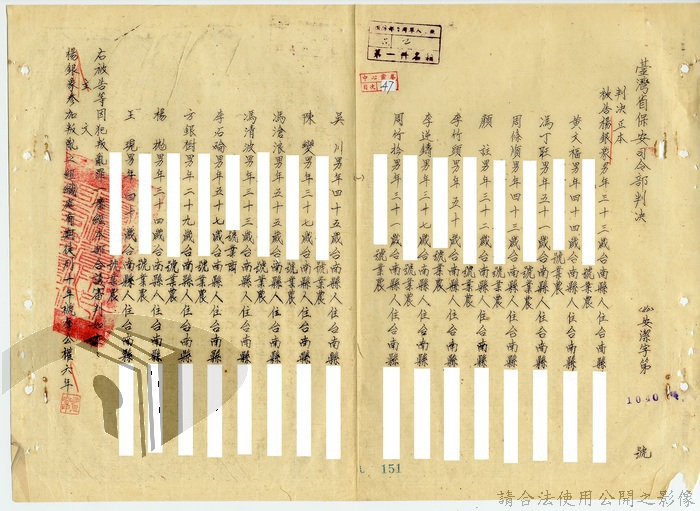 臺灣省保安司令部判決
安潔字第1040號
判決正本
被告楊銀象男年三十三歲台南縣人住台南縣
號業農
黃文福男年四十四歲台南縣人住台南縣
號業農
馮丁男年五十一歲台南縣人住台南縣
號業農
周條順男年三十歲台南縣人住台南縣
號業農
顏 男年五十歲台南縣人住台南縣
號業農
李竹頭男年五十歲台南縣人住台南縣
號業農
李道鑄男年三十七歲台南縣人住台南縣
號業農
周竹拾男年三十歲台南縣人住台南縣
號業農
吳川男年四十五歲台南縣人住台南縣
號業農
陳燮男年三十七歲台南縣人住台南縣
號業農
馮滄浪男年五十歲台南縣人住台南縣
號業農
馮清波男年三十三歲台南縣人住台南縣
號業農
李石 男年三十五歲台南縣人住台南縣
號業商
方銀樹男年二十九歲台南縣人住台南縣
號業農
楊 男年三十四歲台南縣人住台南縣
號業農
王 男年四十歲台南縣人住台南縣
號業農
右被告等因犯叛亂罪
主文
楊銀象參加叛亂之組織處有期徒刑十年褫奪公權六年
第一件名相
47
151
請合法使用公開之影像